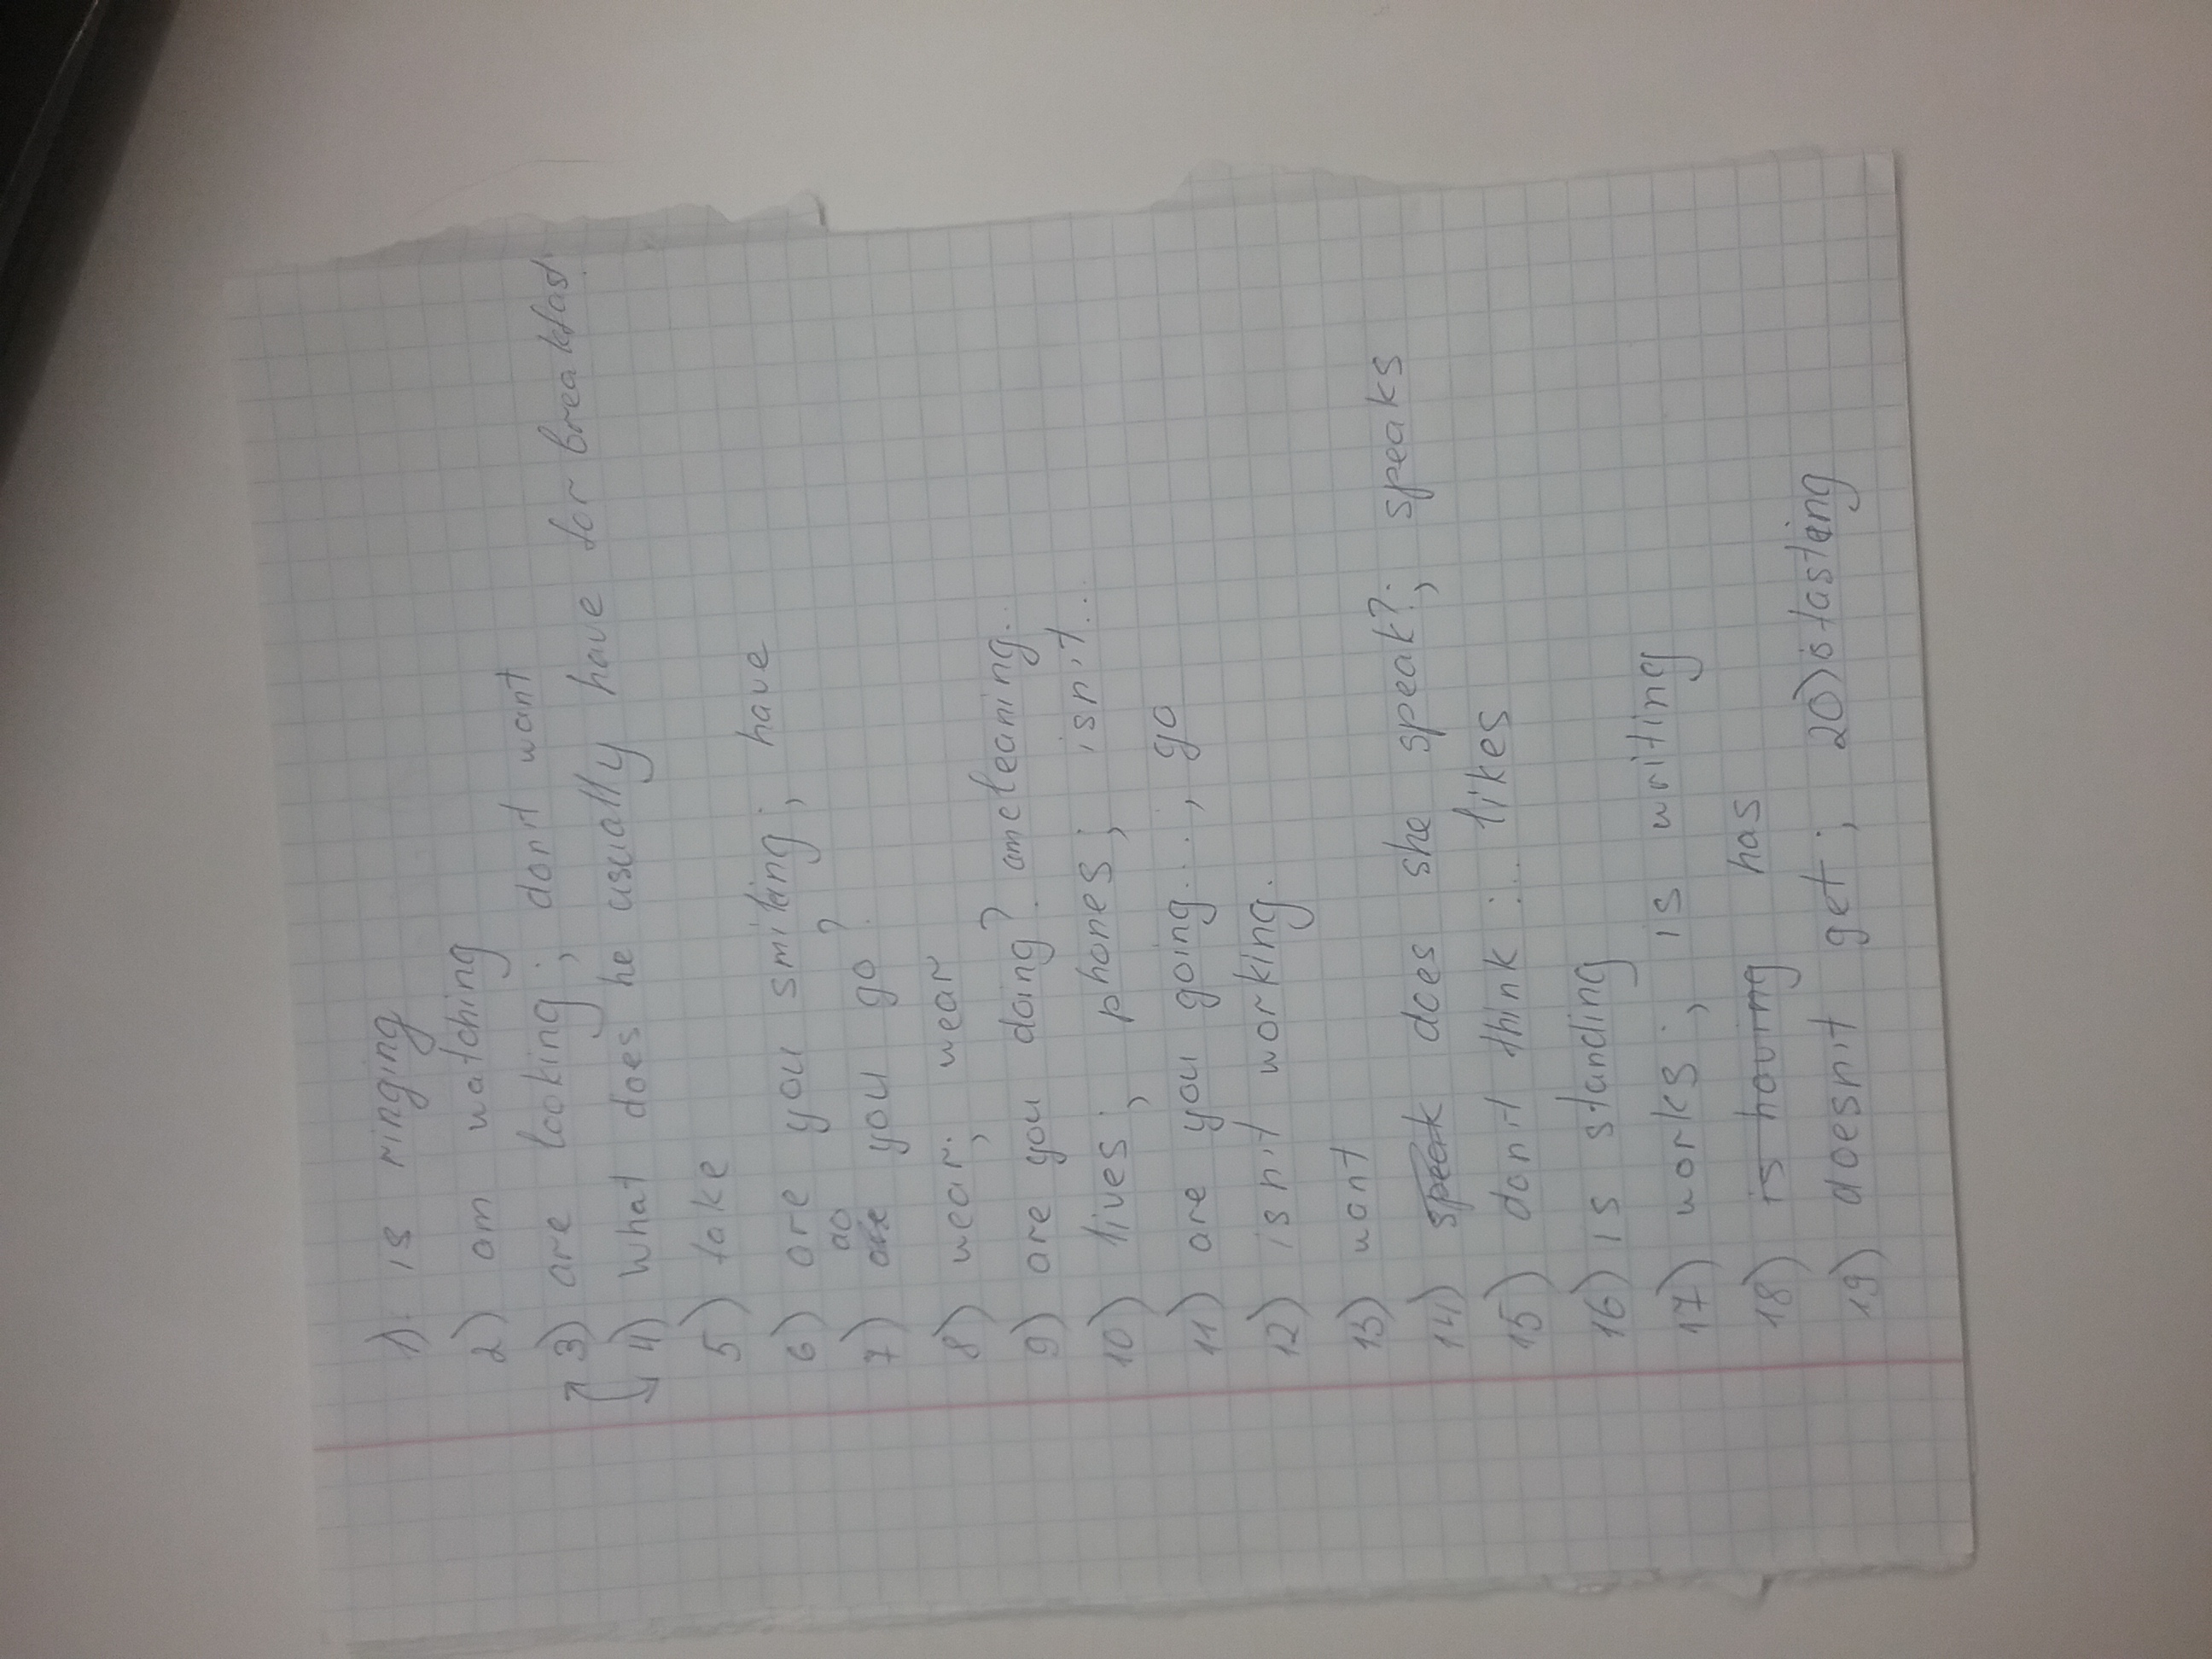 1) is ringing
2) am watching
3) are looking; don't want
4) what does he usually have for breakfast
5) take
6) are you smiling; have
7) do you go?
8) wear; wear
9) are you doing? am cleaning...
10) lives; phones; isn't...
11) are you going...; go
12) isn't working.
13) want
14) speak does she speak?; speaks
15) don't think ... likes
16) is standing
17) works; is writing
18) is having has
19) doesn't get; 20) is tasting